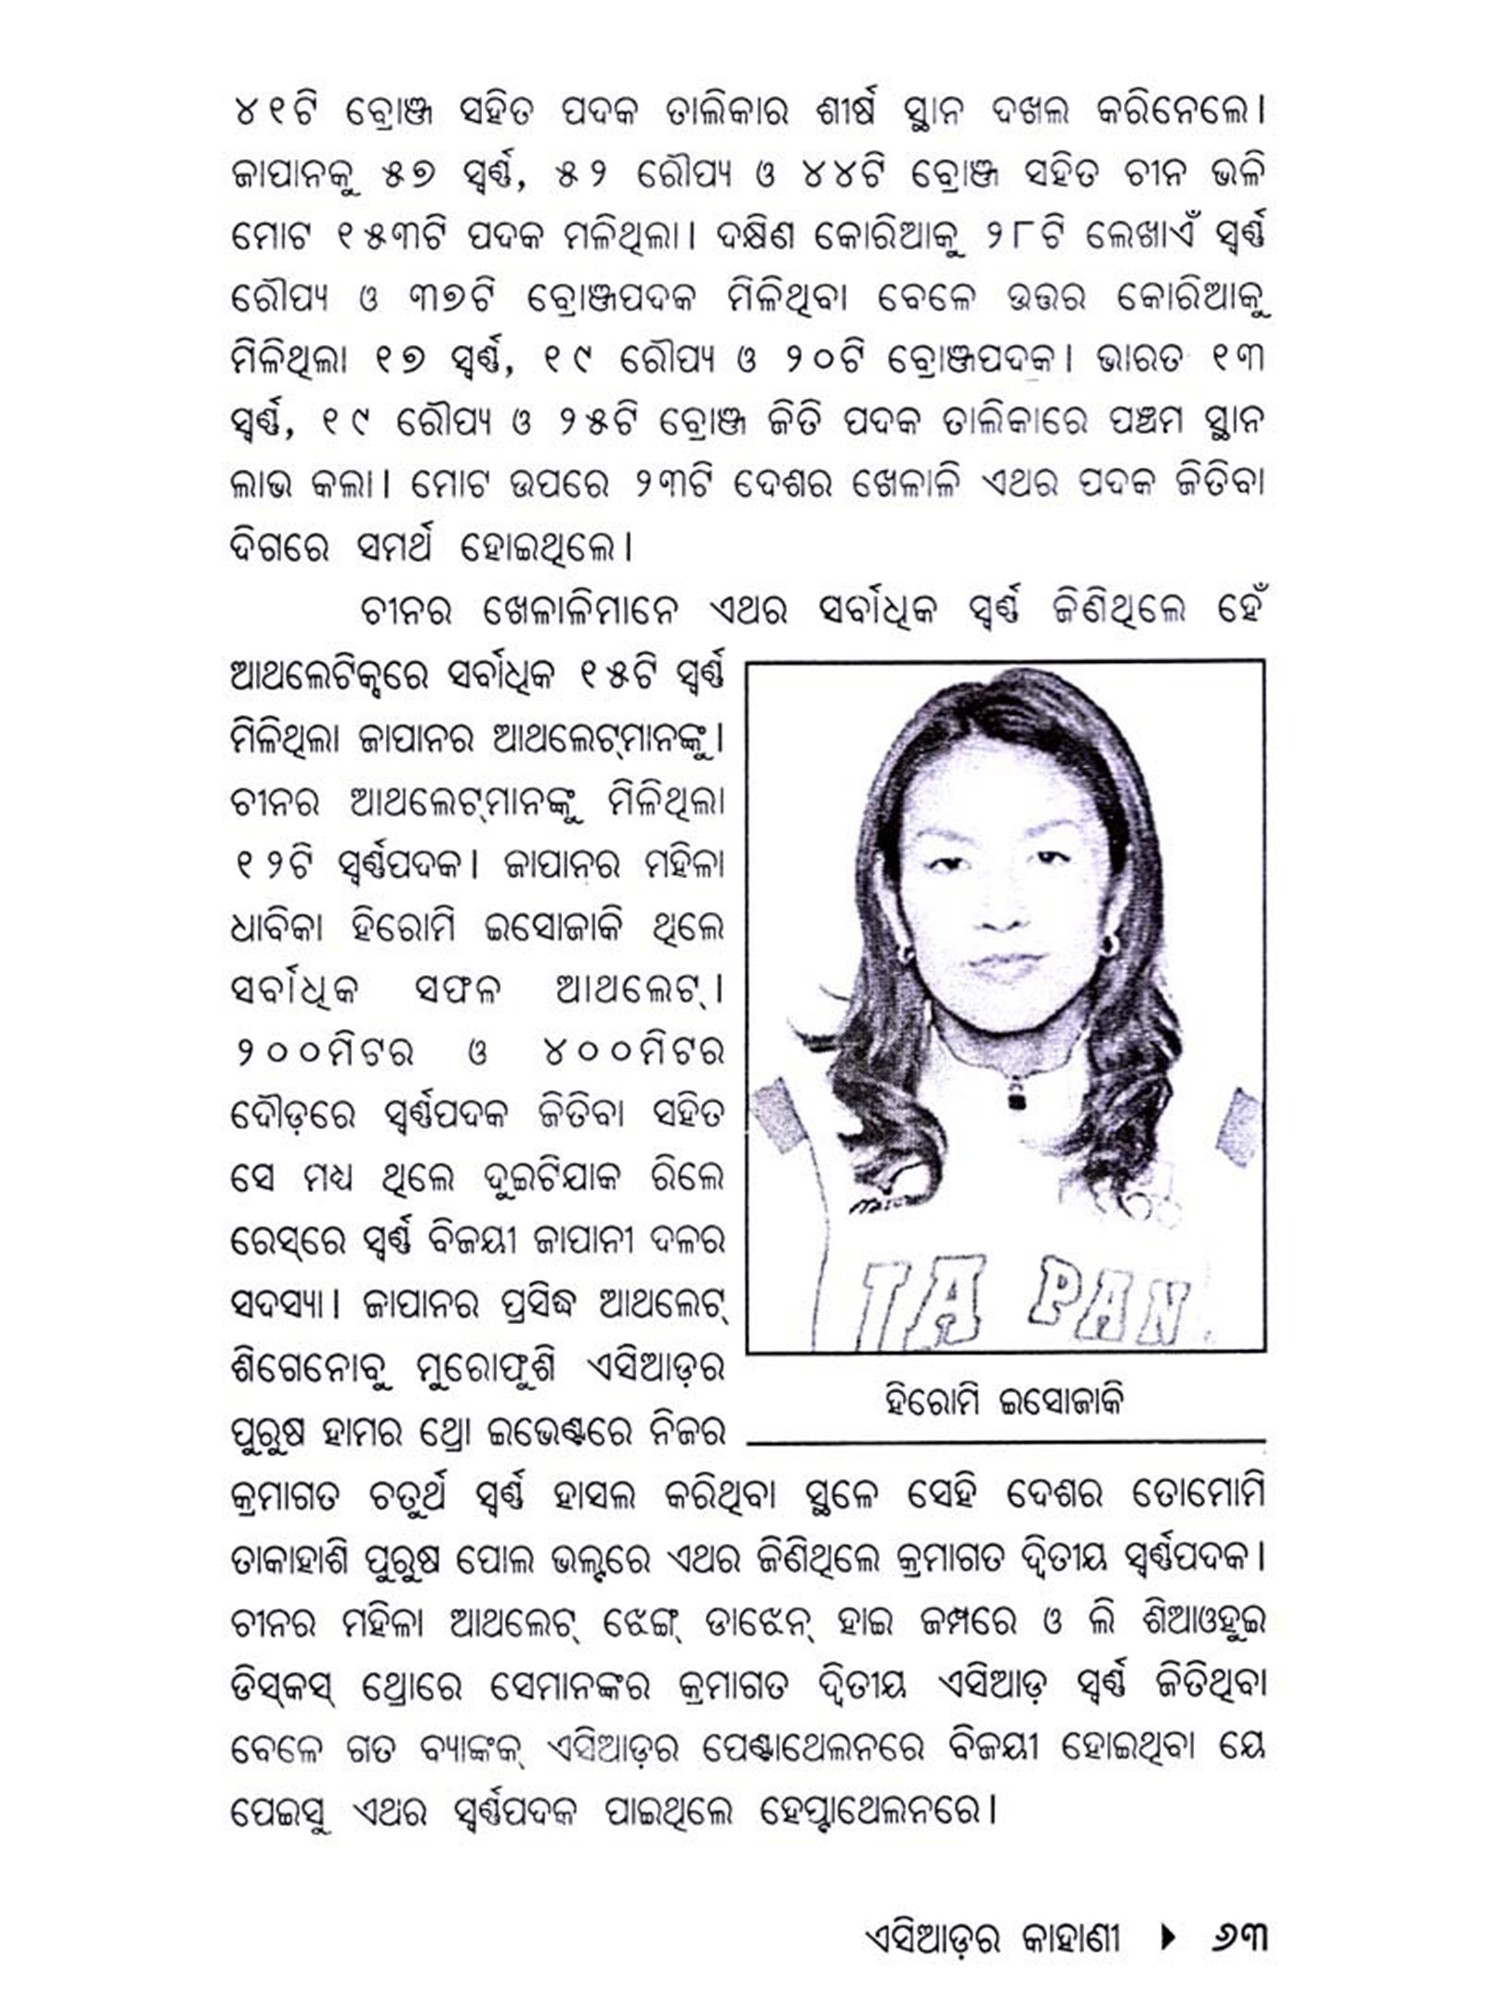 ୪୧ଟି ବ୍ରୋଞ୍ଜ ସହିତ ପଦକ ତାଲିକାର ଶୀର୍ଷ ସ୍ଥାନ ଦଖଲ କରିନେଲେ।
ଜାପାନକୁ ୫୭ ସ୍ୱର୍ଣ୍ଣ, ୫୨ ରୌପ୍ୟ ଓ ୪୪ଟି ବ୍ରୋଞ୍ଜ ସହିତ ଚୀନ ଭଳି
ମୋଟ ୧୫୩ଟି ପଦକ ମଳିଥିଲା। ଦକ୍ଷିଣ କୋରିଆକୁ ୨୮ଟି ଲେଖାଏଁ ସ୍ୱର୍ଣ୍ଣ
ରୌପ୍ୟ ଓ ୩୭ଟି ବ୍ରୋଞ୍ଜପଦକ ମିଳିଥିବା ବେଳେ ଉତ୍ତର କୋରିଆକୁ
ମିଳିଥିଲା ୧୭ ସ୍ୱର୍ଣ୍ଣ, ୧୯ ରୌପ୍ୟ ଓ ୨୦ଟି ବ୍ରୋଞ୍ଜପଦକ। ଭାରତ ୧୩
ସ୍ୱର୍ଣ୍ଣ, ୧୯ ରୌପ୍ୟ ଓ ୨୫ଟି ବ୍ରୋଞ୍ଜ ଜିତି ପଦକ ତାଲିକାରେ ପଞ୍ଚମ ସ୍ଥାନ
ଲାଭ କଲା। ମୋଟ ଉପରେ ୨୩ଟି ଦେଶର ଖେଳାଳି ଏଥର ପଦକ ଜିତିବା
ଦିଗରେ ସମର୍ଥ ହୋଇଥିଲେ।
ଚୀନର ଖେଳାଳିମାନେ ଏଥର ସର୍ବାଧିକ ସ୍ୱର୍ଣ୍ଣ ଜିଣିଥିଲେ ହେଁ
ଆଥଲେଟିକ୍ସରେ ସର୍ବାଧିକ ୧୫ଟି ସ୍ୱର୍ଣ୍ଣ
ମିଳିଥିଲା ଜାପାନର ଆଥଲେଟ୍‌ମାନଙ୍କୁ।
ଚୀନର ଆଥଲେଟ୍‌ମାନଙ୍କୁ ମିଳିଥିଲା
୧୨ଟି ସ୍ୱର୍ଣ୍ଣପଦକ। ଜାପାନର ମହିଳା
ଧାବିକା ହିରୋମି ଇସୋଜାକି ଥିଲେ
ସର୍ବାଧିକ ସଫଳ ଆଥଲେଟ୍।
୨୦୦ମିଟର ଓ ୪୦୦ମିଟର
ଦୌଡ଼ରେ ସ୍ୱର୍ଣ୍ଣପଦକ ଜିତିବା ସହିତ
ସେ ମଧ୍ୟ ଥିଲେ ଦୁଇଟିଯାକ ରିଲେ
ରେସ୍‌ରେ ସ୍ୱର୍ଣ୍ଣ ବିଜୟୀ ଜାପାନୀ ଦଳର
ସଦସ୍ୟା। ଜାପାନର ପ୍ରସିଦ୍ଧ ଆଥଲେଟ୍
ଶିଗେନୋବୁ ମୁରୋଫୁଶି ଏସିଆଡ଼ର
ପୁରୁଷ ହାମର ଥ୍ରୋ ଇଭେଣ୍ଟରେ ନିଜର
JAPAN
ହିରୋମି ଇସୋଜାକି
କ୍ରମାଗତ ଚତୁର୍ଥ ସ୍ୱର୍ଣ୍ଣ ହାସଲ କରିଥିବା ସ୍ଥଳେ ସେହି ଦେଶର ତୋମୋମି
ତାକାହାଶି ପୁରୁଷ ପୋଲ ଭଲ୍ଟରେ ଏଥର ଜିଣିଥିଲେ କ୍ରମାଗତ ଦ୍ୱିତୀୟ ସ୍ୱର୍ଣ୍ଣପଦକ।
ଚୀନର ମହିଳା ଆଥଲେଟ୍ ଝେଙ୍ଗ୍ ଡାଝେନ୍ ହାଇ ଜମ୍ପରେ ଓ ଲି ଶିଆଓହୁଇ
ଡିସ୍‌କସ୍ ଥ୍ରୋରେ ସେମାନଙ୍କର କ୍ରମାଗତ ଦ୍ୱିତୀୟ ଏସିଆଡ଼ ସ୍ୱର୍ଣ୍ଣ ଜିତିଥିବା
ବେଳେ ଗତ ବ୍ୟାଙ୍କକ୍ ଏସିଆଡ଼ର ପେଣ୍ଟାଥେଲନରେ ବିଜୟୀ ହୋଇଥିବା ୟେ
ପେଇସୁ ଏଥର ସ୍ୱର୍ଣ୍ଣପଦକ ପାଇଥିଲେ ହେପ୍ଟାଥେଲନରେ।
ଏସିଆଡ଼ର କାହାଣୀ ▶ ୬୩